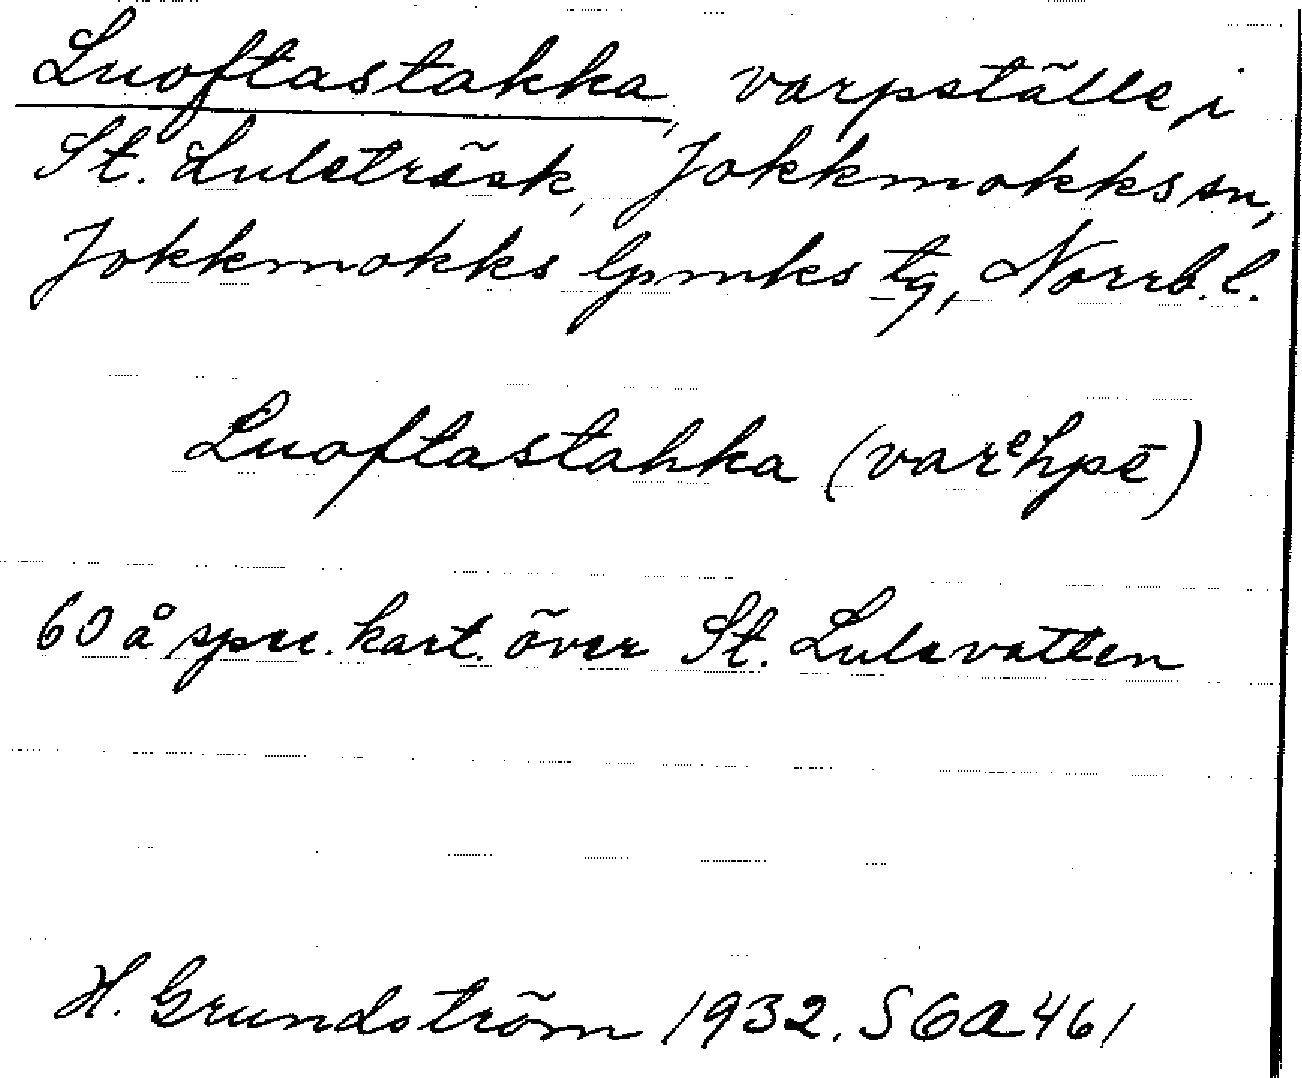 Luoftastakka, varpställe i
St. Luleträsk, Jokkmokks sn,
Jokkmokks lpmks tg, Norrb. l.
Luoftastahka (varᵉhpē)
60 å spec. kart. över St. Lulevatten
H. Grundström 1932. SGA 461